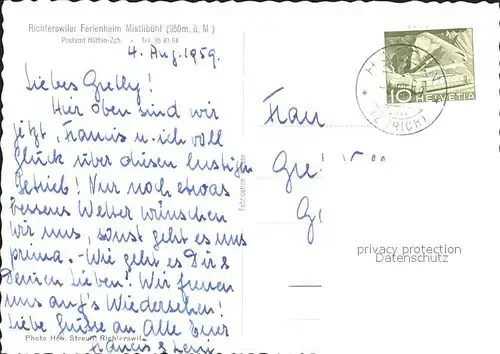 Richterswiler Ferienheim Mistlibühl (950m. ü. M.)
Postamt Hütten-Zch. Tel. 95 81 54
4. Aug. 1959.
Liebes Gretly!
Hier oben sind wir
jetzt, Francis u. ich voll
Glück über diesen lustigen
Betrieb! Nur noch etwas
besseres Wetter wünschen
wir uns, sonst geht es uns
prima. - Wie geht es Dir &
Deinen Lieben! Wir freuen
uns auf's Wiedersehen!
Liebe Grüsse an Alle Eure
Francis &
Photo Hch. Richterswil
Fabrication
10 HELVETIA
(ZÜRICH)
Frau
privacy protection
Datenschutz